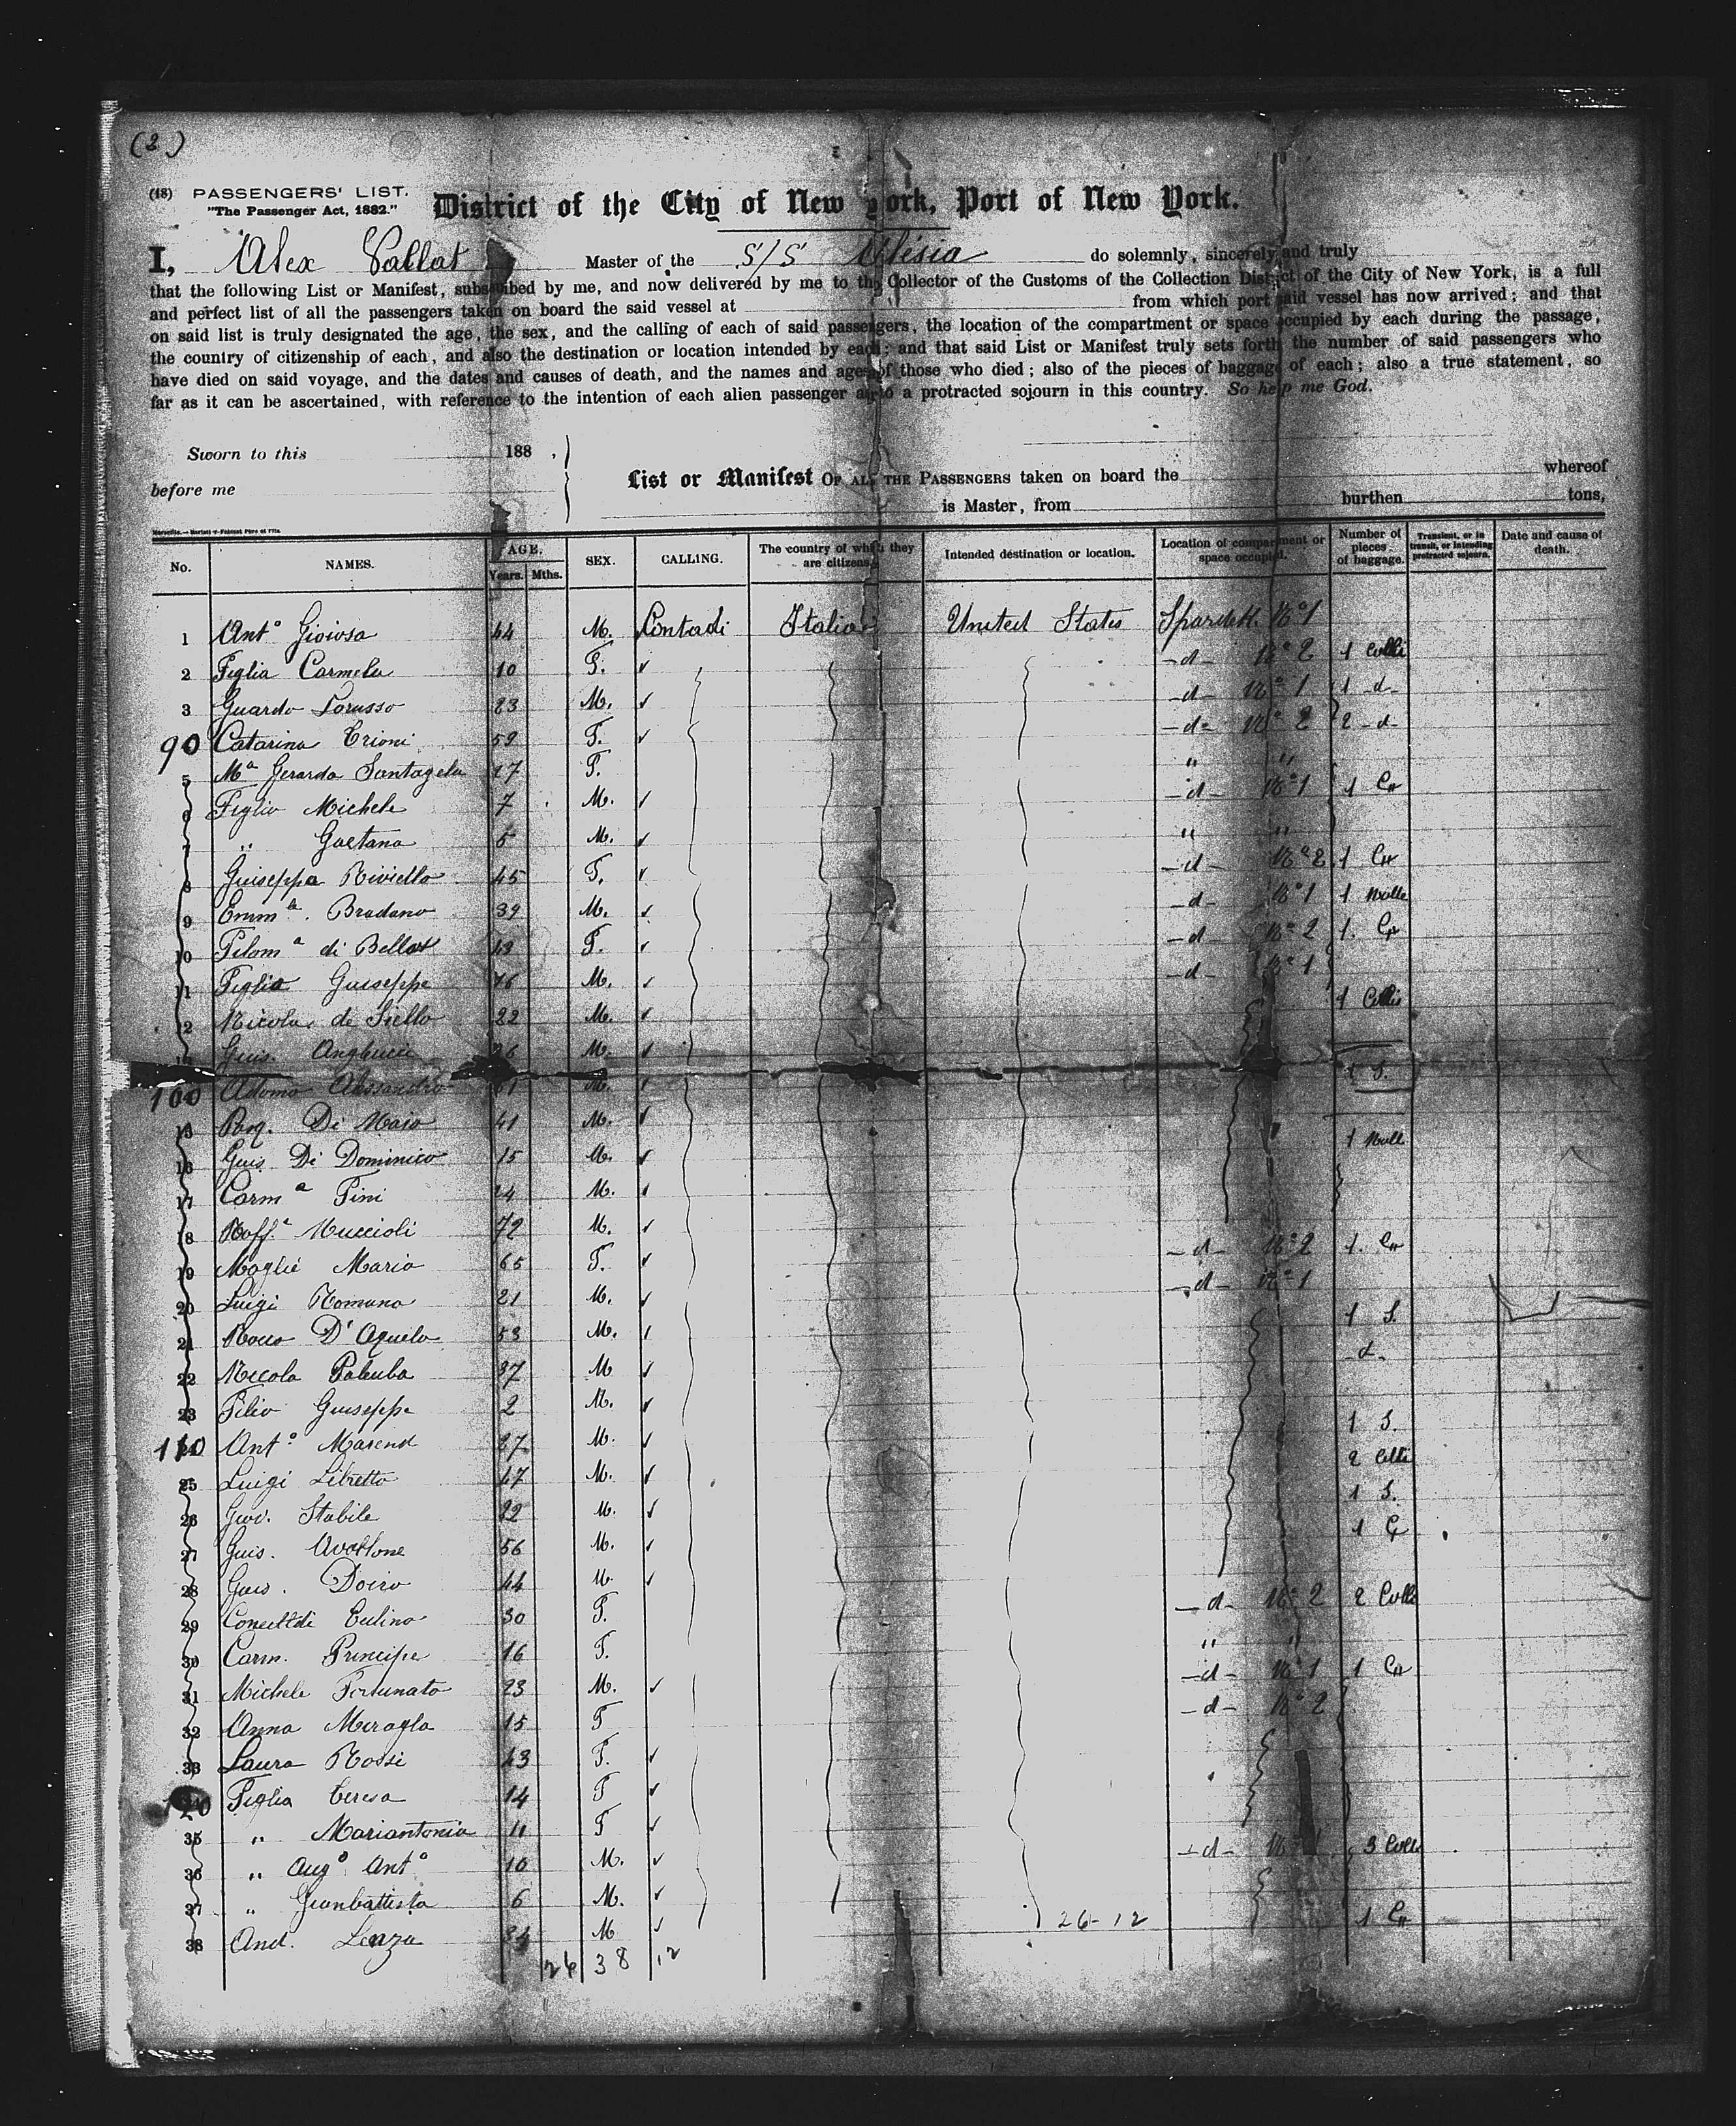 (2)
(18) PASSENGERS' LIST.
"The Passenger Act, 1882."
District of the City of New York, Port of New York.
I, Alex Vallat Master of the S/S Alésia do solemnly, sincerely and truly
that the following List or Manifest, subscribed by me, and now delivered by me to the Collector of the Customs of the Collection District of the City of New York, is a full
and perfect list of all the passengers taken on board the said vessel at from which port said vessel has now arrived; and that
on said list is truly designated the age, the sex, and the calling of each of said passengers, the location of the compartment or space occupied by each during the passage,
the country of citizenship of each, and also the destination or location intended by each; and that said List or Manifest truly sets forth the number of said passengers who
have died on said voyage, and the dates and causes of death, and the names and ages of those who died; also of the pieces of baggage of each; also a true statement, so
far as it can be ascertained, with reference to the intention of each alien passenger as to a protracted sojourn in this country. So help me God.
Sworn to this 188 ,
before me
List or Manifest OF ALL THE PASSENGERS taken on board the whereof
is Master, from burthen tons,
No. NAMES. AGE. Years. Mths. SEX. CALLING. The country of which they are citizens. Intended destination or location. Location of compartment or space occupied. Number of pieces of baggage. Transient, or in transit, or intending protracted sojourn. Date and cause of death.
1 Antº Gioiosa 44 M. Contadi Italia United States Nº 1
2 Figlia Carmela 10 F. -d- Nº 2 1 Colli
3 Guardo Lorusso 23 M. -d- Nº 1 1 -d-
90 Catarina Trioni 59 F. -d- Nº 2 2 -d-
5 Mª Gerarda Santagela 17 F. " "
6 Figlio Michele 7 M. -d- Nº 1 1 Cn
7 " Gaetano 5 M. " "
8 Guiseppa Riviello 45 F. -d- Nº 2 1 Cn
9 Emmle. Bradano 39 M. -d- Nº 1 1
10 Filomª di Bellas 43 F. -d- Nº 2 1. Cn
11 Figlio Guiseppe 16 M. -d- Nº 1
12 Nicola de Siello 22 M. 1 Collis
13 Guis. 26 M.
100 Adamo Alessandro M. 1 S.
15 Pasq. Di Maio 41 M.
16 Guis. Di Dominico 15 M. 1
17 Carmª Pini 24 M.
18 Raffª Muccioli 72 M.
19 Moglie Maria 65 F. -d- Nº 2 1. Cn
20 Luigi Romano 21 M. -d- Nº 1
21 Rocco D'Aquila 53 M. 1 S.
22 Nicola Paluba 37 M -d-
23 Filio Guiseppe 2 M.
110 Antº 27 M. 1 S.
25 Luigi Libretto 47 M. 2 Colli
26 Giov. Stabile 22 M. 1 S.
27 Guis. Avallone 56 M. 1 Cn
28 Guis. Doiro 44 M.
29 Culino 30 F. -d- Nº 2 2 Colli
30 Carm. Principe 16 F. " "
31 Michele Fortunato 23 M. -d- Nº 1 1 Cn
32 Anna Meragla 15 F -d- Nº 2
33 Laura Rossi 43 F.
120 Figlia Teresa 14 F
35 " Mariantonia 11 F
36 " Augº Antº 10 M. -d- Nº 1 3 Colli
37 " Gianbattista 6 M.
38 And. Lenza 34 M 1 Cn
26-12
26 38 12